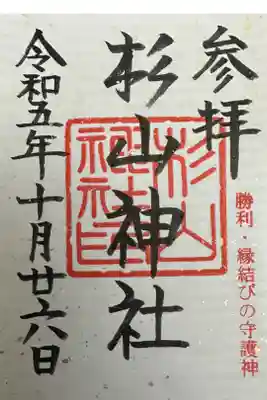 参拝
勝利・縁結びの守護神
杉山神社
杉山神社印
令和五年十月廿六日